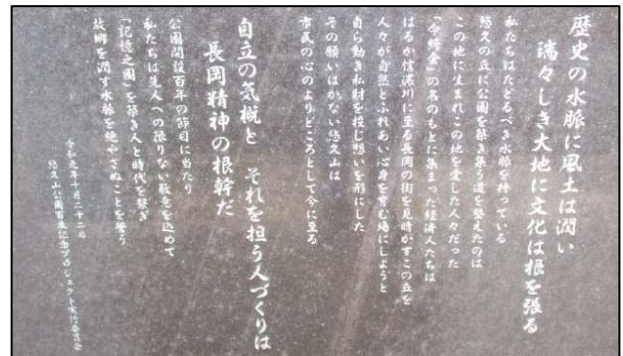 歴史の水脈に風土は潤い
瑞々しき大地に文化は根を張る
私たちはたどるべき水脈を持っている
悠久の丘に公園を築き集う道を整えたのは
この地に生まれこの地を愛した人々だった
「令終会」の名のもとに集まった経済人たちは
はるか信濃川に至る長岡の街を見晴かすこの丘を
人々が自然とふれあい心身を育む場にしようと
自ら動き私財を投じ想いを形にした
その願いはかない悠久山は
市民の心のよりどころとして今に至る
自立の気概と それを担う人づくりは
長岡精神の根幹だ
公園開設百年の節目に当たり
私たちは先人への限りない敬意を込めて
「記憶之園」を築き人と時代を繋ぎ
故郷を潤す水脈を絶やさぬことを誓う
令和元年十月二十二日
悠久山公園百年記念プロジェクト実行委員会